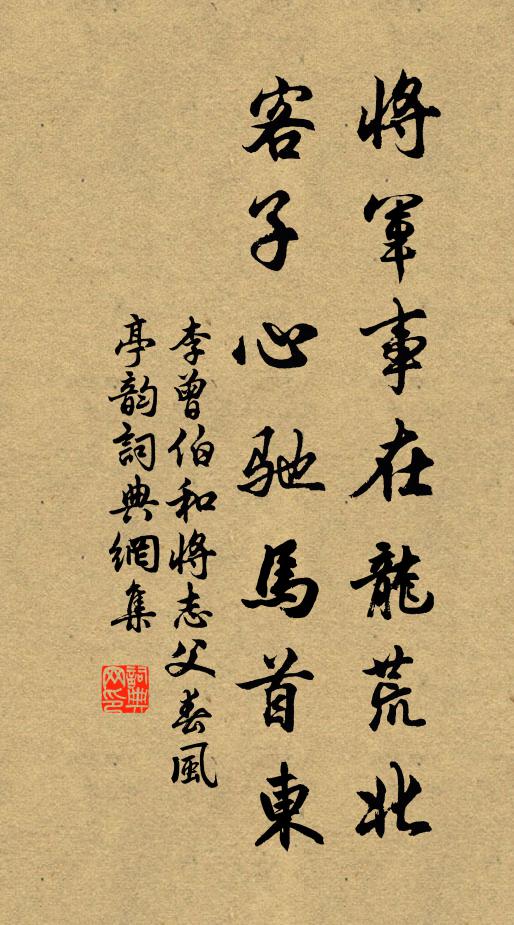 將軍事在龍荒北
客子心馳馬首東
李曾伯和將志父春風
亭韵詞典網集
詞典
网印